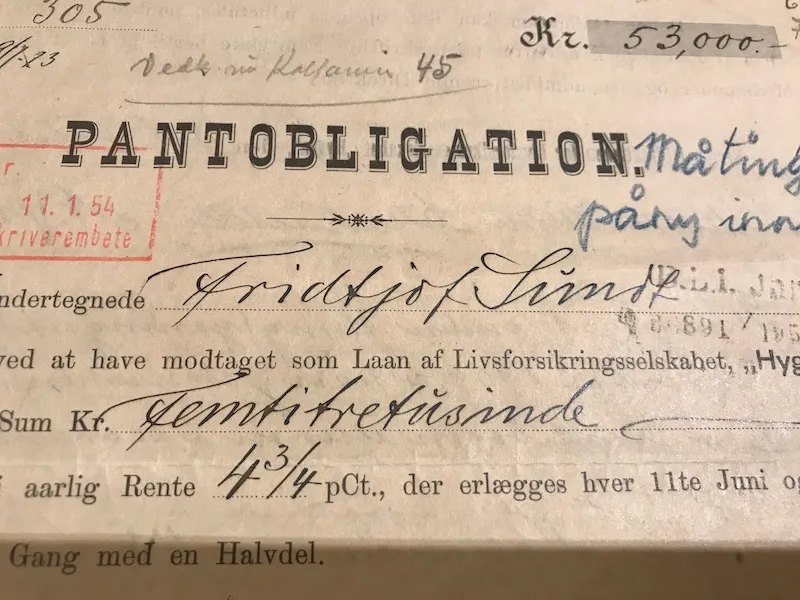 305
Kr. 53,000.-
45
PANTOBLIGATION.
Måting
påny inn
11.1.54
kriverembete
ndertegnede Fridtjof Sundt
891 / 195
ved at have modtaget som Laan af Livsforsikringsselskabet, „Hyg
Sum Kr. Femtitretusinde
i aarlig Rente 4 3/4 pCt., der erlægges hver 11te Juni og
Gang med en Halvdel.